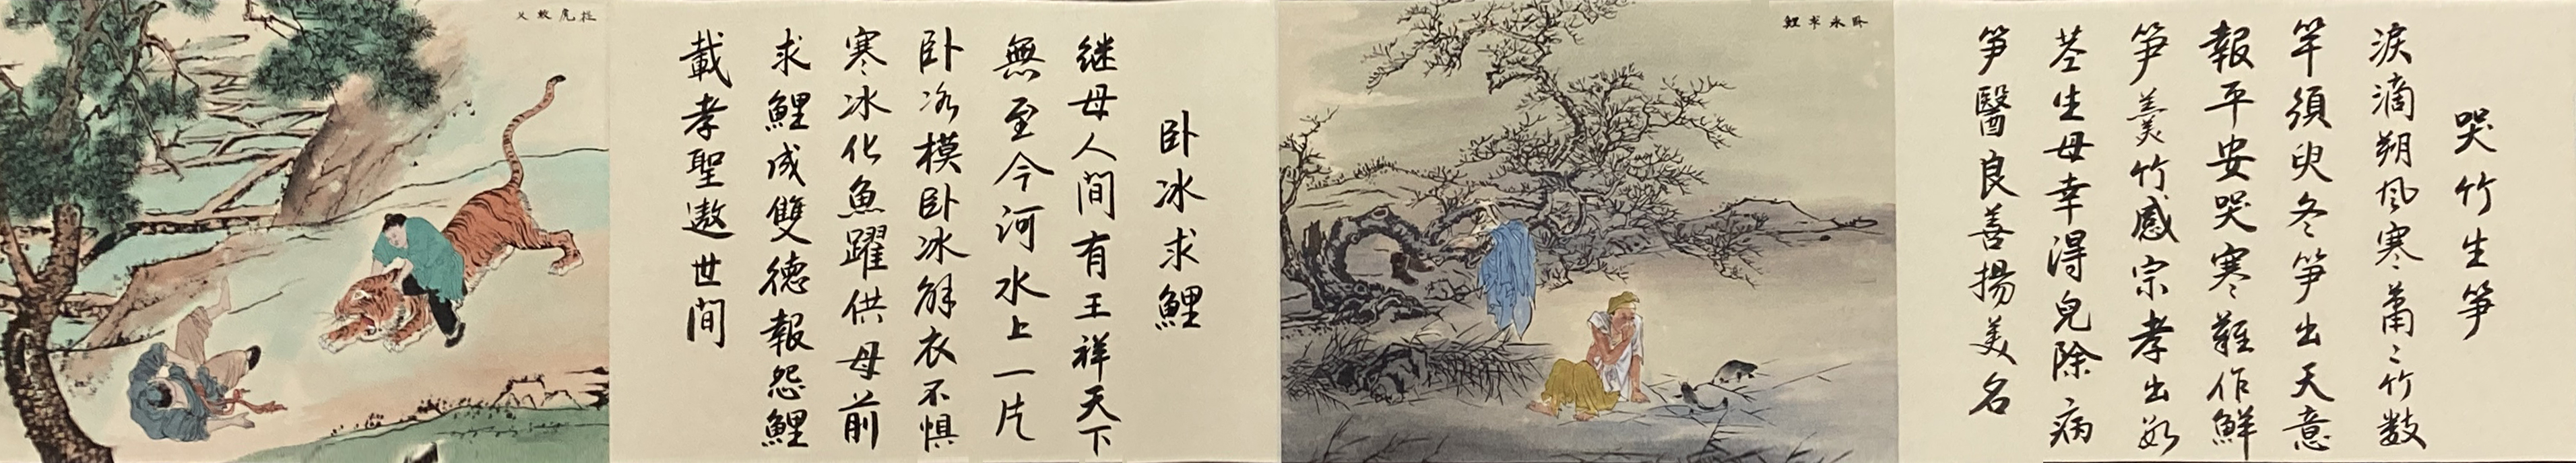 哭竹生笋
淚滴朔风寒蕭〻竹数
竿須臾冬笋出天意
報平安哭寒難作鮮
笋羹竹感宗孝出
茎生母幸得兒除病
笋醫良善揚美名
卧冰求鯉
卧冰求鯉
继母人间有王祥天下
無至今河水上一片
卧冰模卧冰解衣不惧
寒冰化魚躍供母前
求鯉成雙德報怨鯉
載孝聖遨世间
扼虎救父